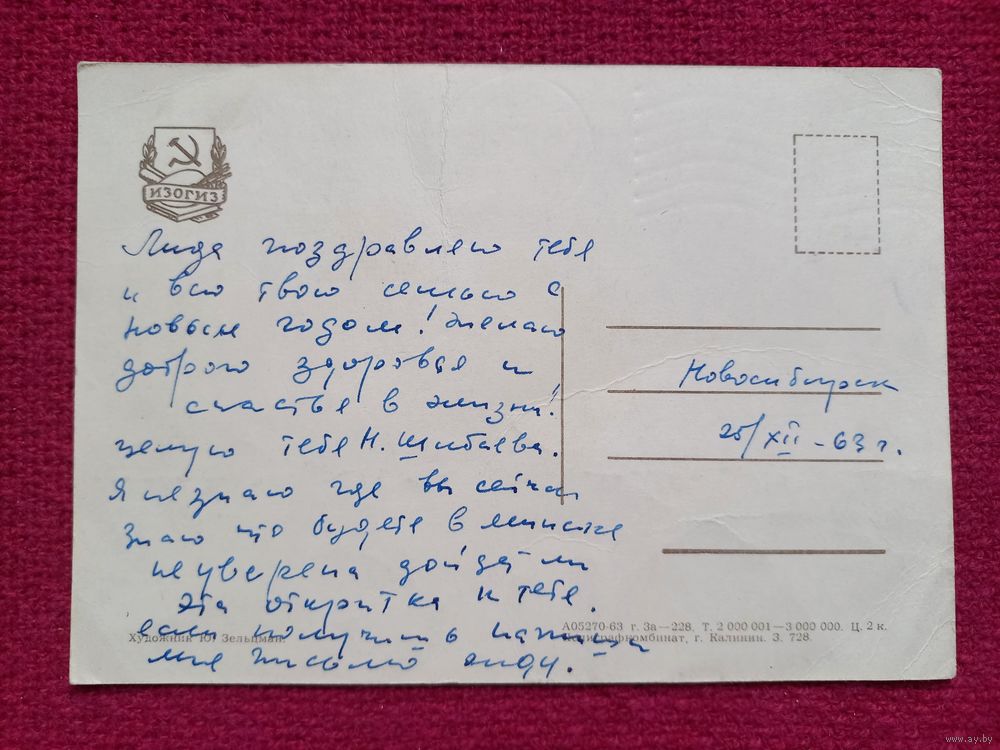 ИЗОГИЗ
Лида поздравляю тебя
и всю твою семью с
новым годом! желаю
доброго здоровья и
счастья в жизни!
целую тебя Н. Шибаева.
Я не знаю где вы сейчас
знаю что будете в минске
не уверена дойдет ли
эта открытка к тебе.
если получишь напиши
мне письмо жду.
Новосибирск
25/XII – 63 г.
Художник Ю. Зельцман.
А05270-63 г. За—228. Т. 2 000 001—3 000 000. Ц. 2 к.
Полиграфкомбинат, г. Калинин. З. 728.
www.ay.by